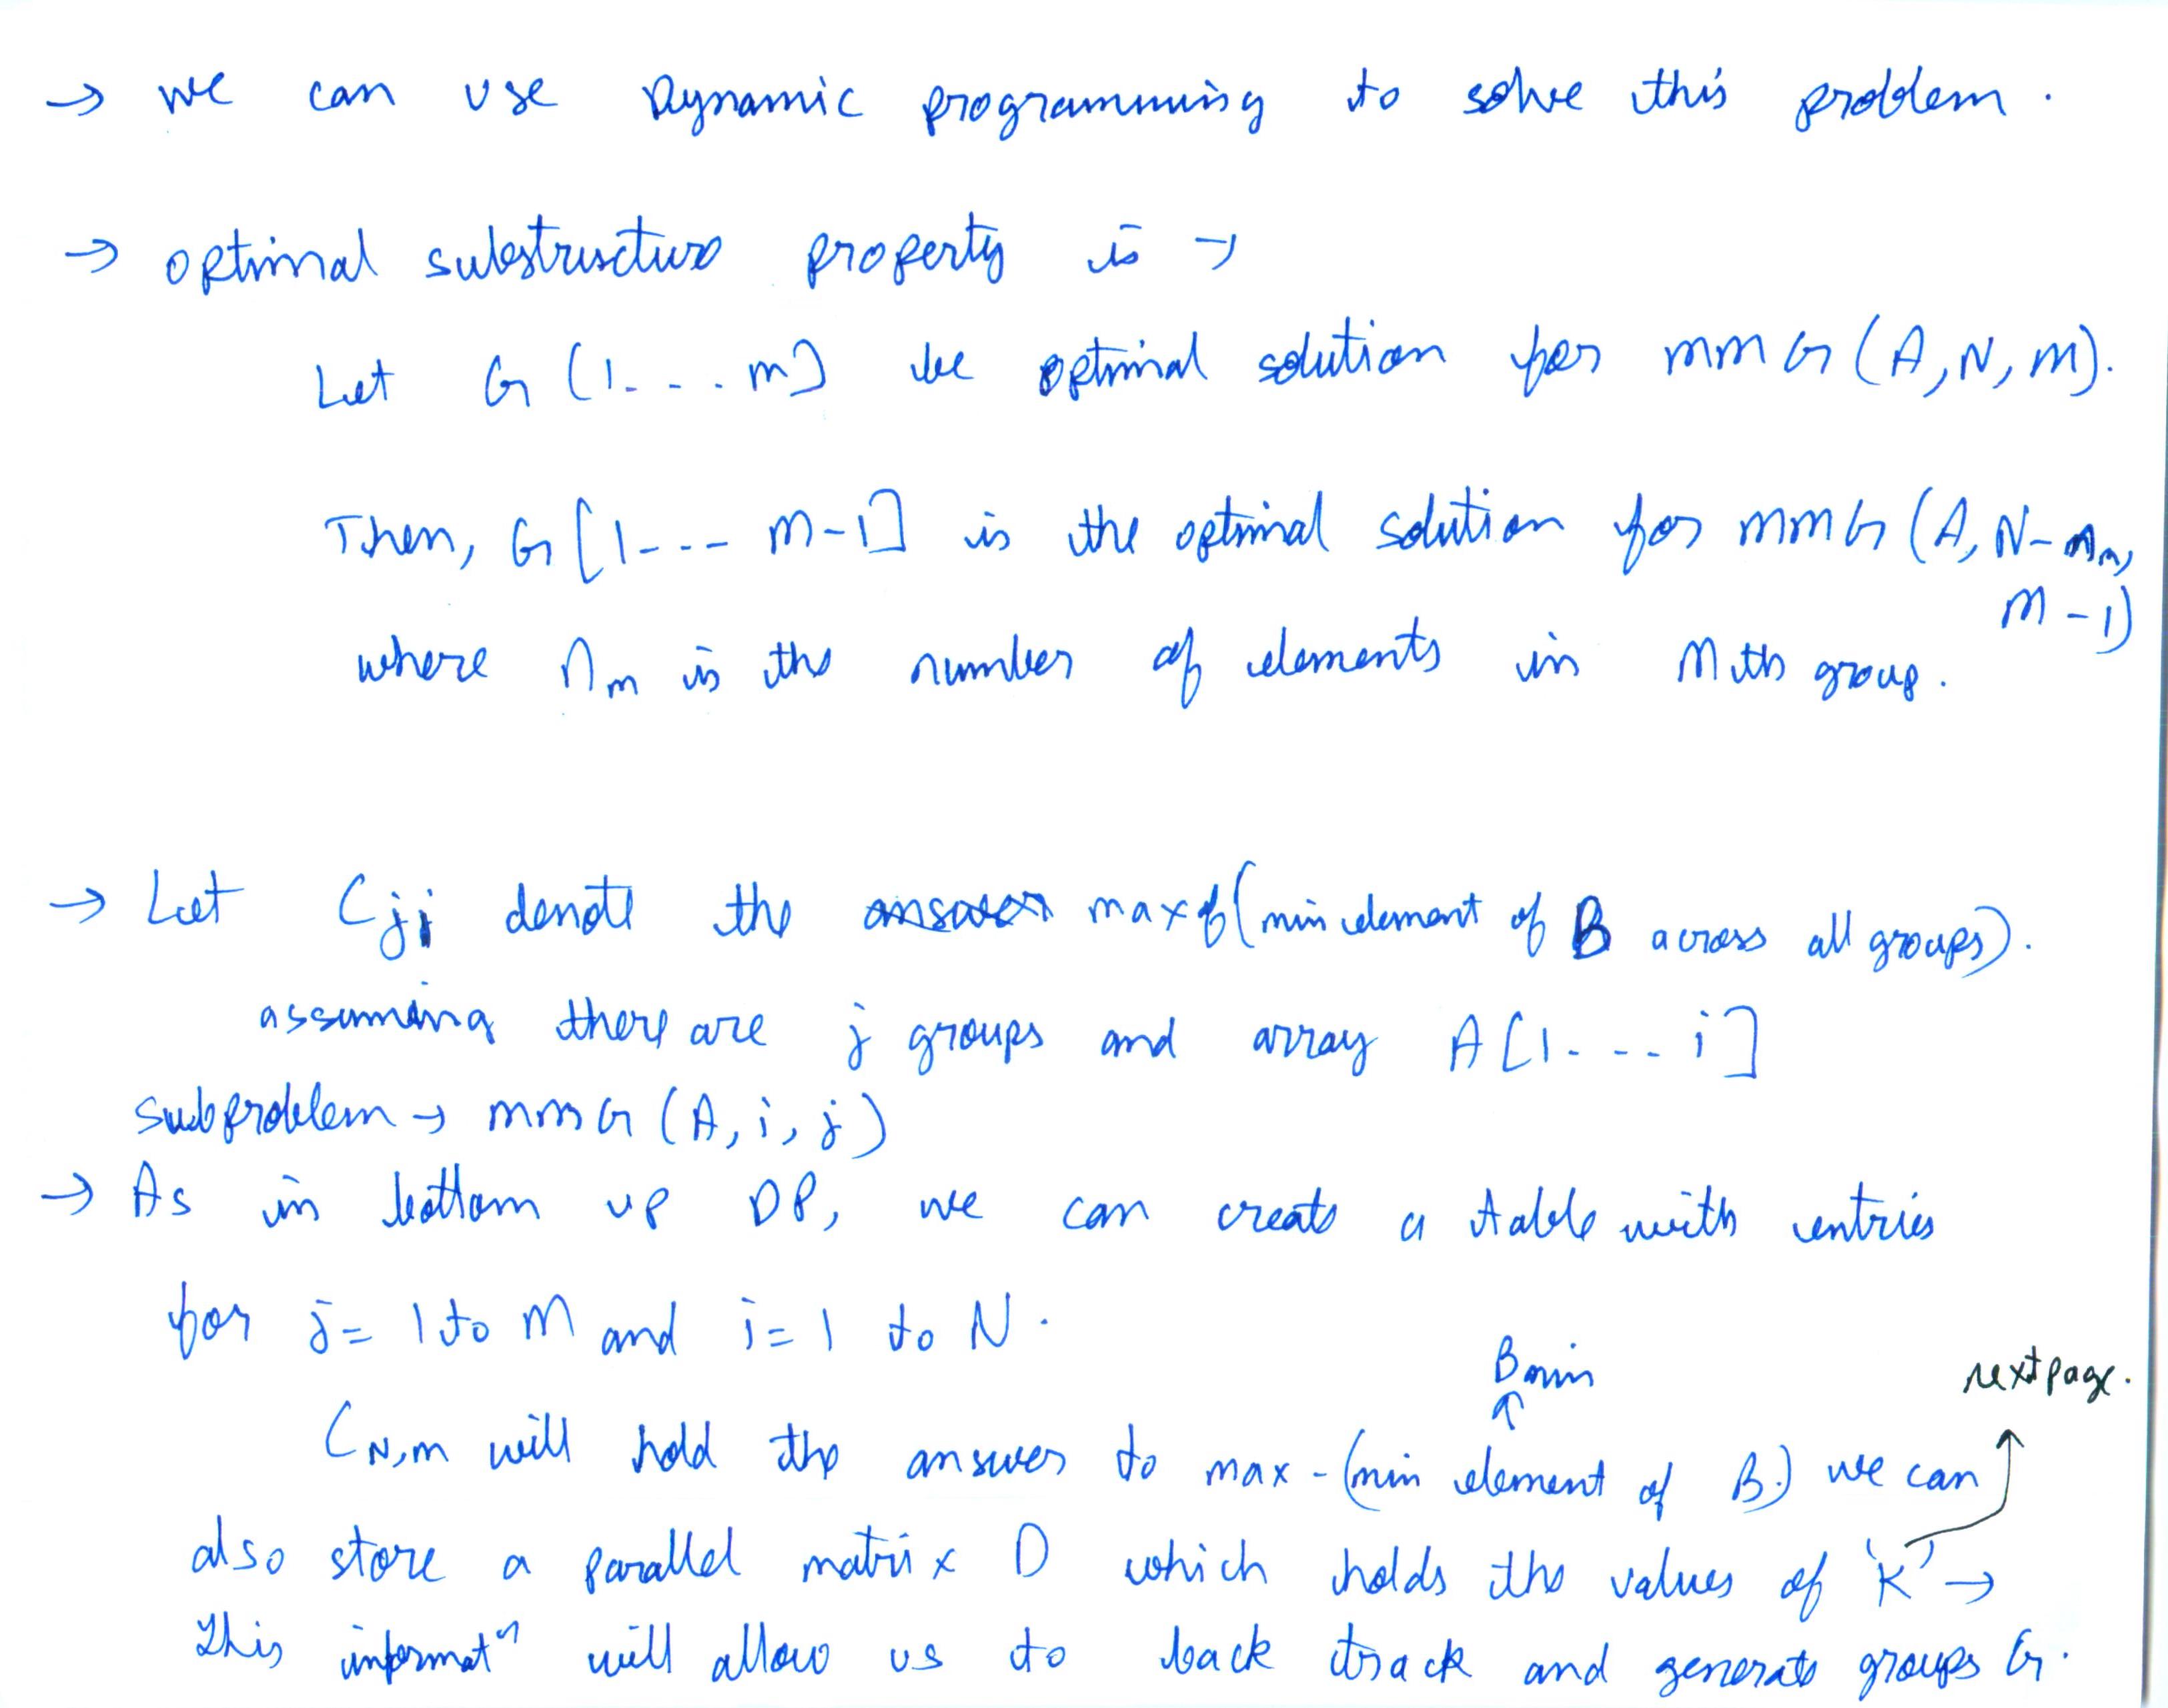 → we can use Dynamic programming to solve this problem.
→ optimal substructure property is →
Let G [1 - - - m] be optimal solution for MMG (A, N, M).
Then, G [1 - - - M-1] is the optimal solution for MMG (A, N-nm,
M-1)
where nm is the number of elements in Mth group.
→ Let Cji denote the max of (min element of B across all groups).
assuming there are j groups and array A[1 - - - i]
subproblem → MMG (A, i, j)
→ As in bottom up DP, we can create a table with entries
for j = 1 to M and i = 1 to N.
Bmin
next page.
CN,M will hold the answer to max - (min element of B.) we can
also store a parallel matrix D which holds the values of 'K' →
This informatn will allow us to back track and generate groups G.